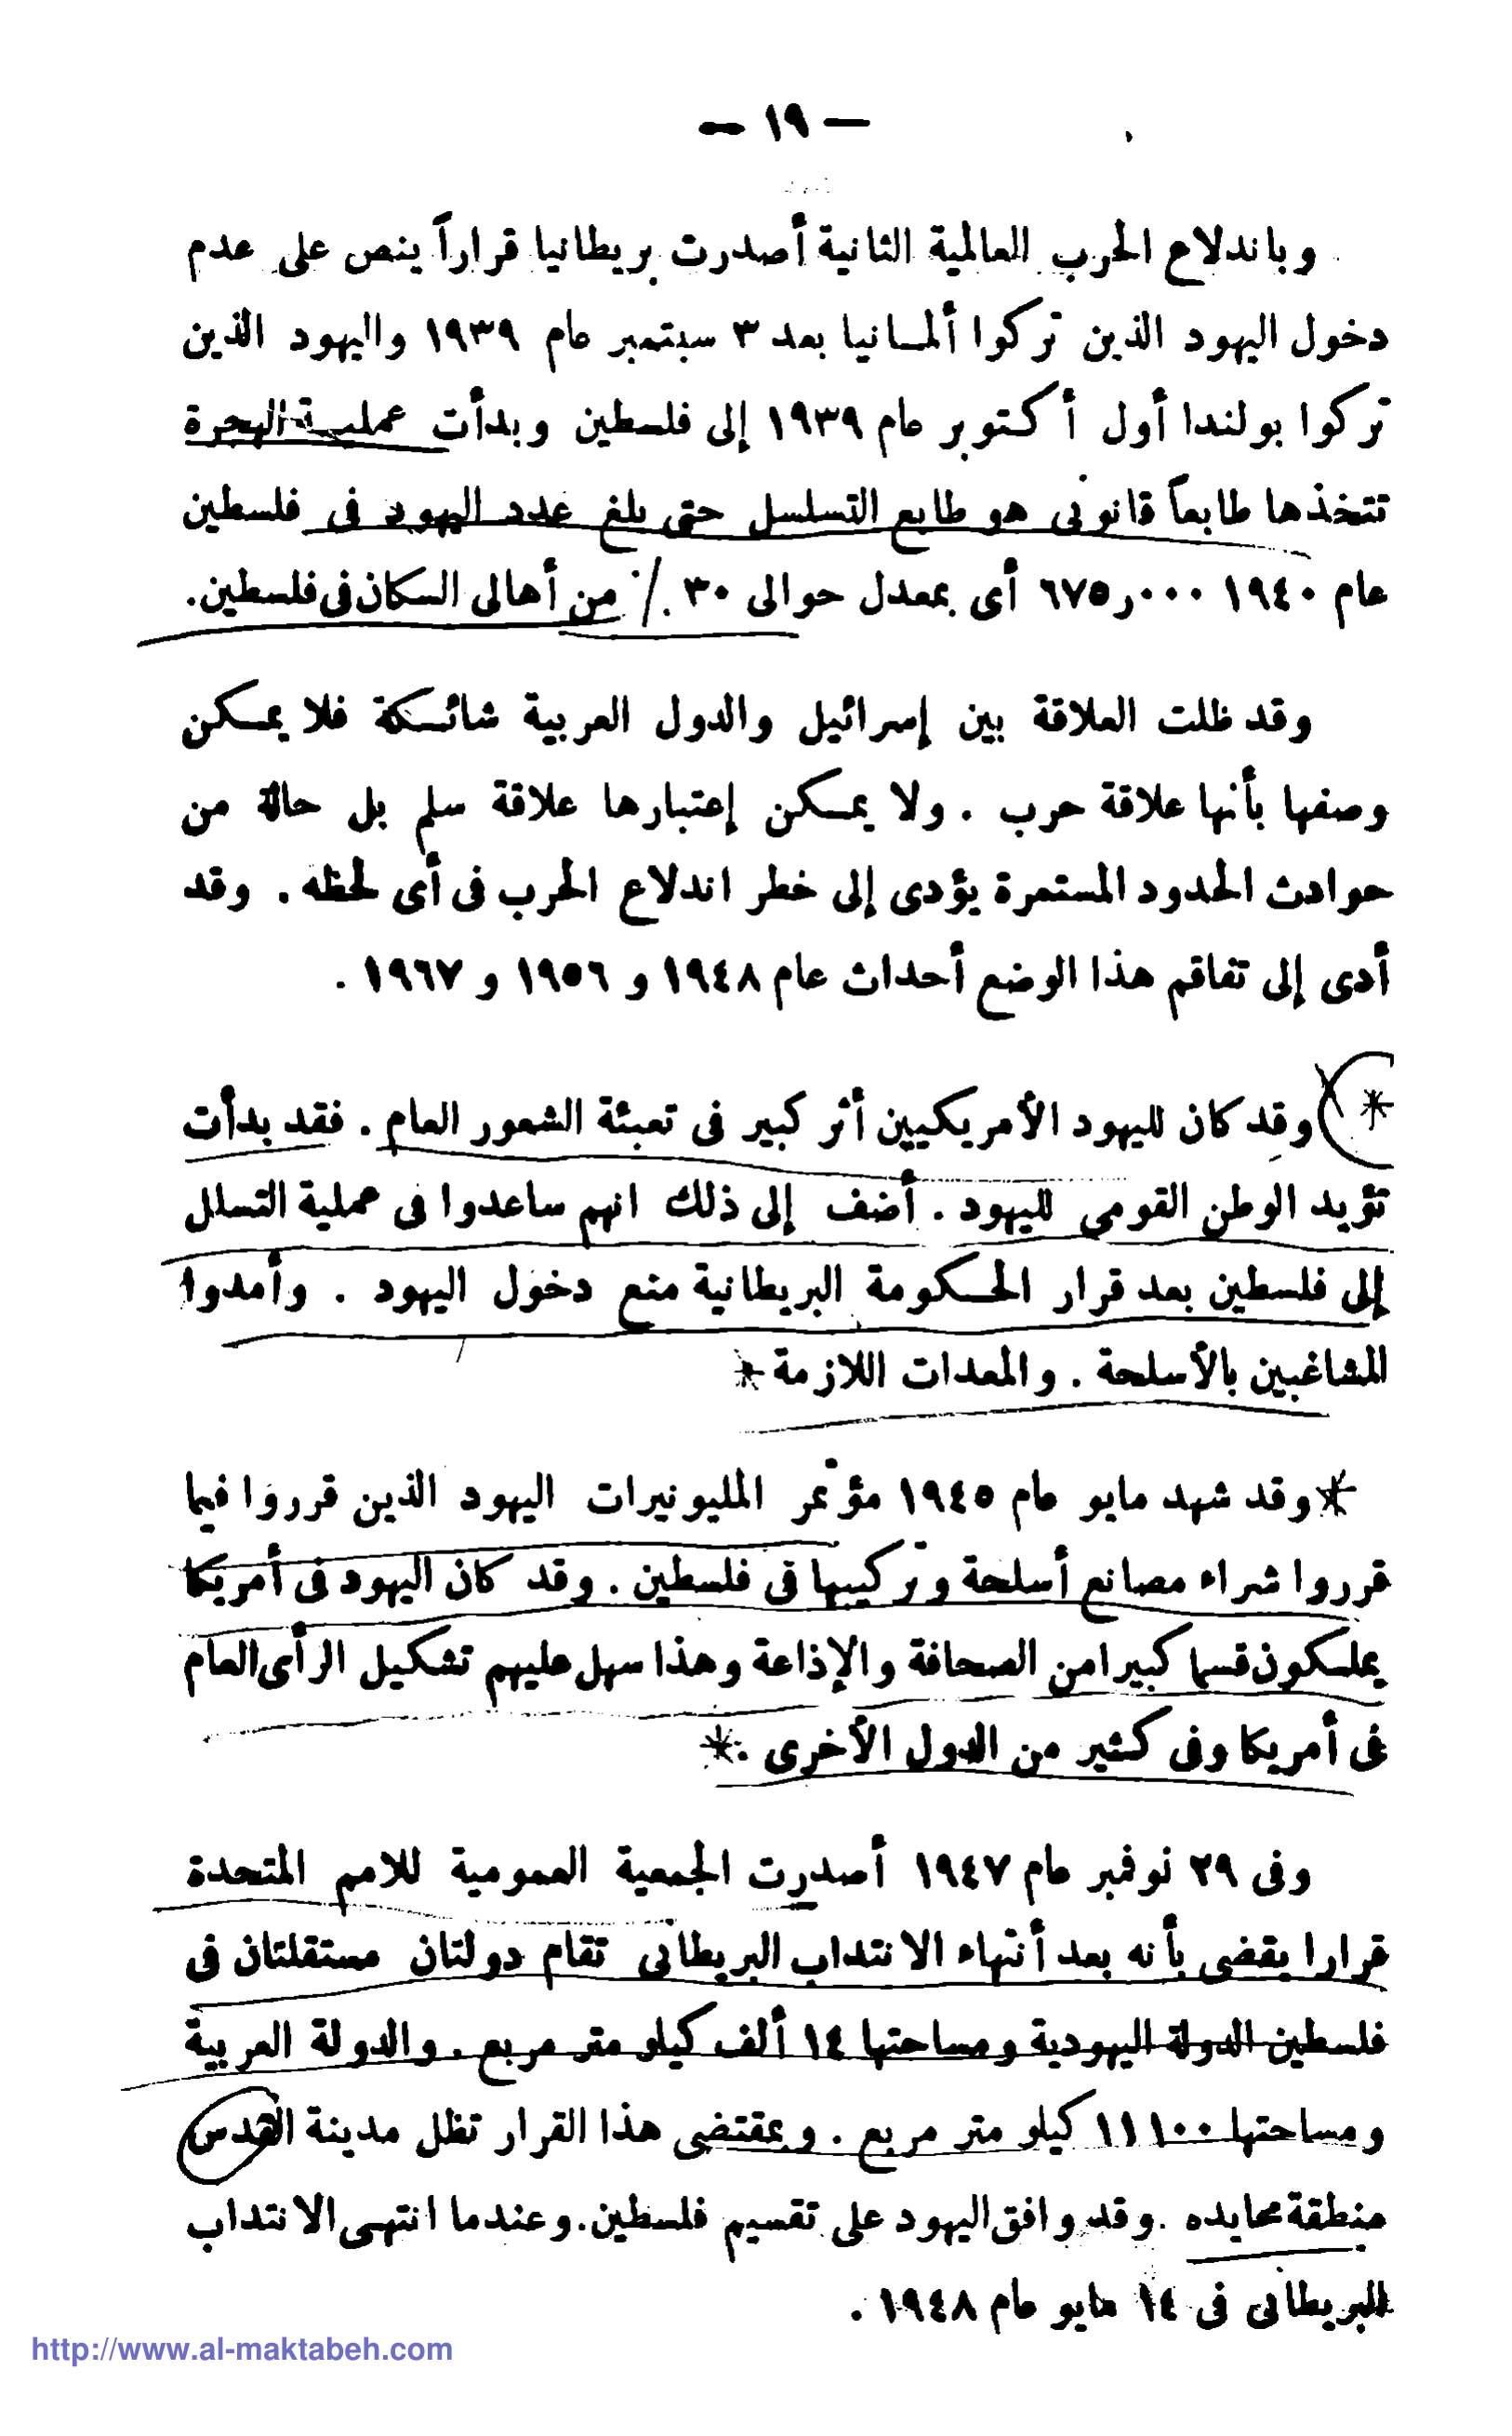 — ١٩ —
وباندلاع الحرب العالمية الثانية أصدرت بريطانيا قراراً ينص على عدم
دخول اليهود الذين تركوا ألمانيا بعد ٣ سبتمبر عام ١٩٣٩ واليهود الذين
تركوا بولندا أول أكتوبر عام ١٩٣٩ إلى فلسطين وبدأت عملية الهجرة
تتخذها طابعاً قانونى هو طابع التسلسل حتى بلغ عدد اليهود فى فلسطين
عام ١٩٤٠ ٦٧٥٫٠٠٠ أى بمعدل حوالى ٣٠ ٪ من أهالى السكان فى فلسطين.
وقد ظلت العلاقة بين إسرائيل والدول العربية شائكة فلا يمكن
وصفها بأنها علاقة حرب . ولا يمكن إعتبارها علاقة سلم بل حالة من
حوادث الحدود المستمرة يؤدى إلى خطر اندلاع الحرب فى أى لحظه . وقد
أدى إلى تفاقم هذا الوضع أحداث عام ١٩٤٨ و ١٩٥٦ و ١٩٦٧ .
* وقد كان لليهود الأمريكيين أثر كبير فى تعبئة الشعور العام . فقد بدأت
تؤيد الوطن القومى لليهود . أضف إلى ذلك انهم ساعدوا فى عملية التسلل
إلى فلسطين بعد قرار الحكومة البريطانية منع دخول اليهود . وأمدوا
المشاغبين بالأسلحة . والمعدات اللازمة *
* وقد شهد مايو عام ١٩٤٥ مؤتمر المليونيرات اليهود الذين قرروا فيما
قرروا شراء مصانع أسلحة وتركيبها فى فلسطين . وقد كان اليهود فى أمريكا
يملكون قسما كبيرا من الصحافة والإذاعة وهذا سهل عليهم تشكيل الرأى العام
فى أمريكا وفى كثير من الدول الأخرى . *
وفى ٢٩ نوفمبر عام ١٩٤٧ أصدرت الجمعية العمومية للامم المتحدة
قرارا يقضى بأنه بعد أنتهاء الانتداب البريطانى تقام دولتان مستقلتان فى
فلسطين الدولة اليهودية ومساحتها ١٤ ألف كيلو متر مربع . والدولة العربية
ومساحتها ١١١٠٠ كيلو متر مربع . وبمقتضى هذا القرار تظل مدينة القدس
منطقة محايده . وقد وافق اليهود على تقسيم فلسطين . وعندما انتهى الانتداب
البريطانى فى ١٤ مايو عام ١٩٤٨ .
http://www.al-maktabeh.com